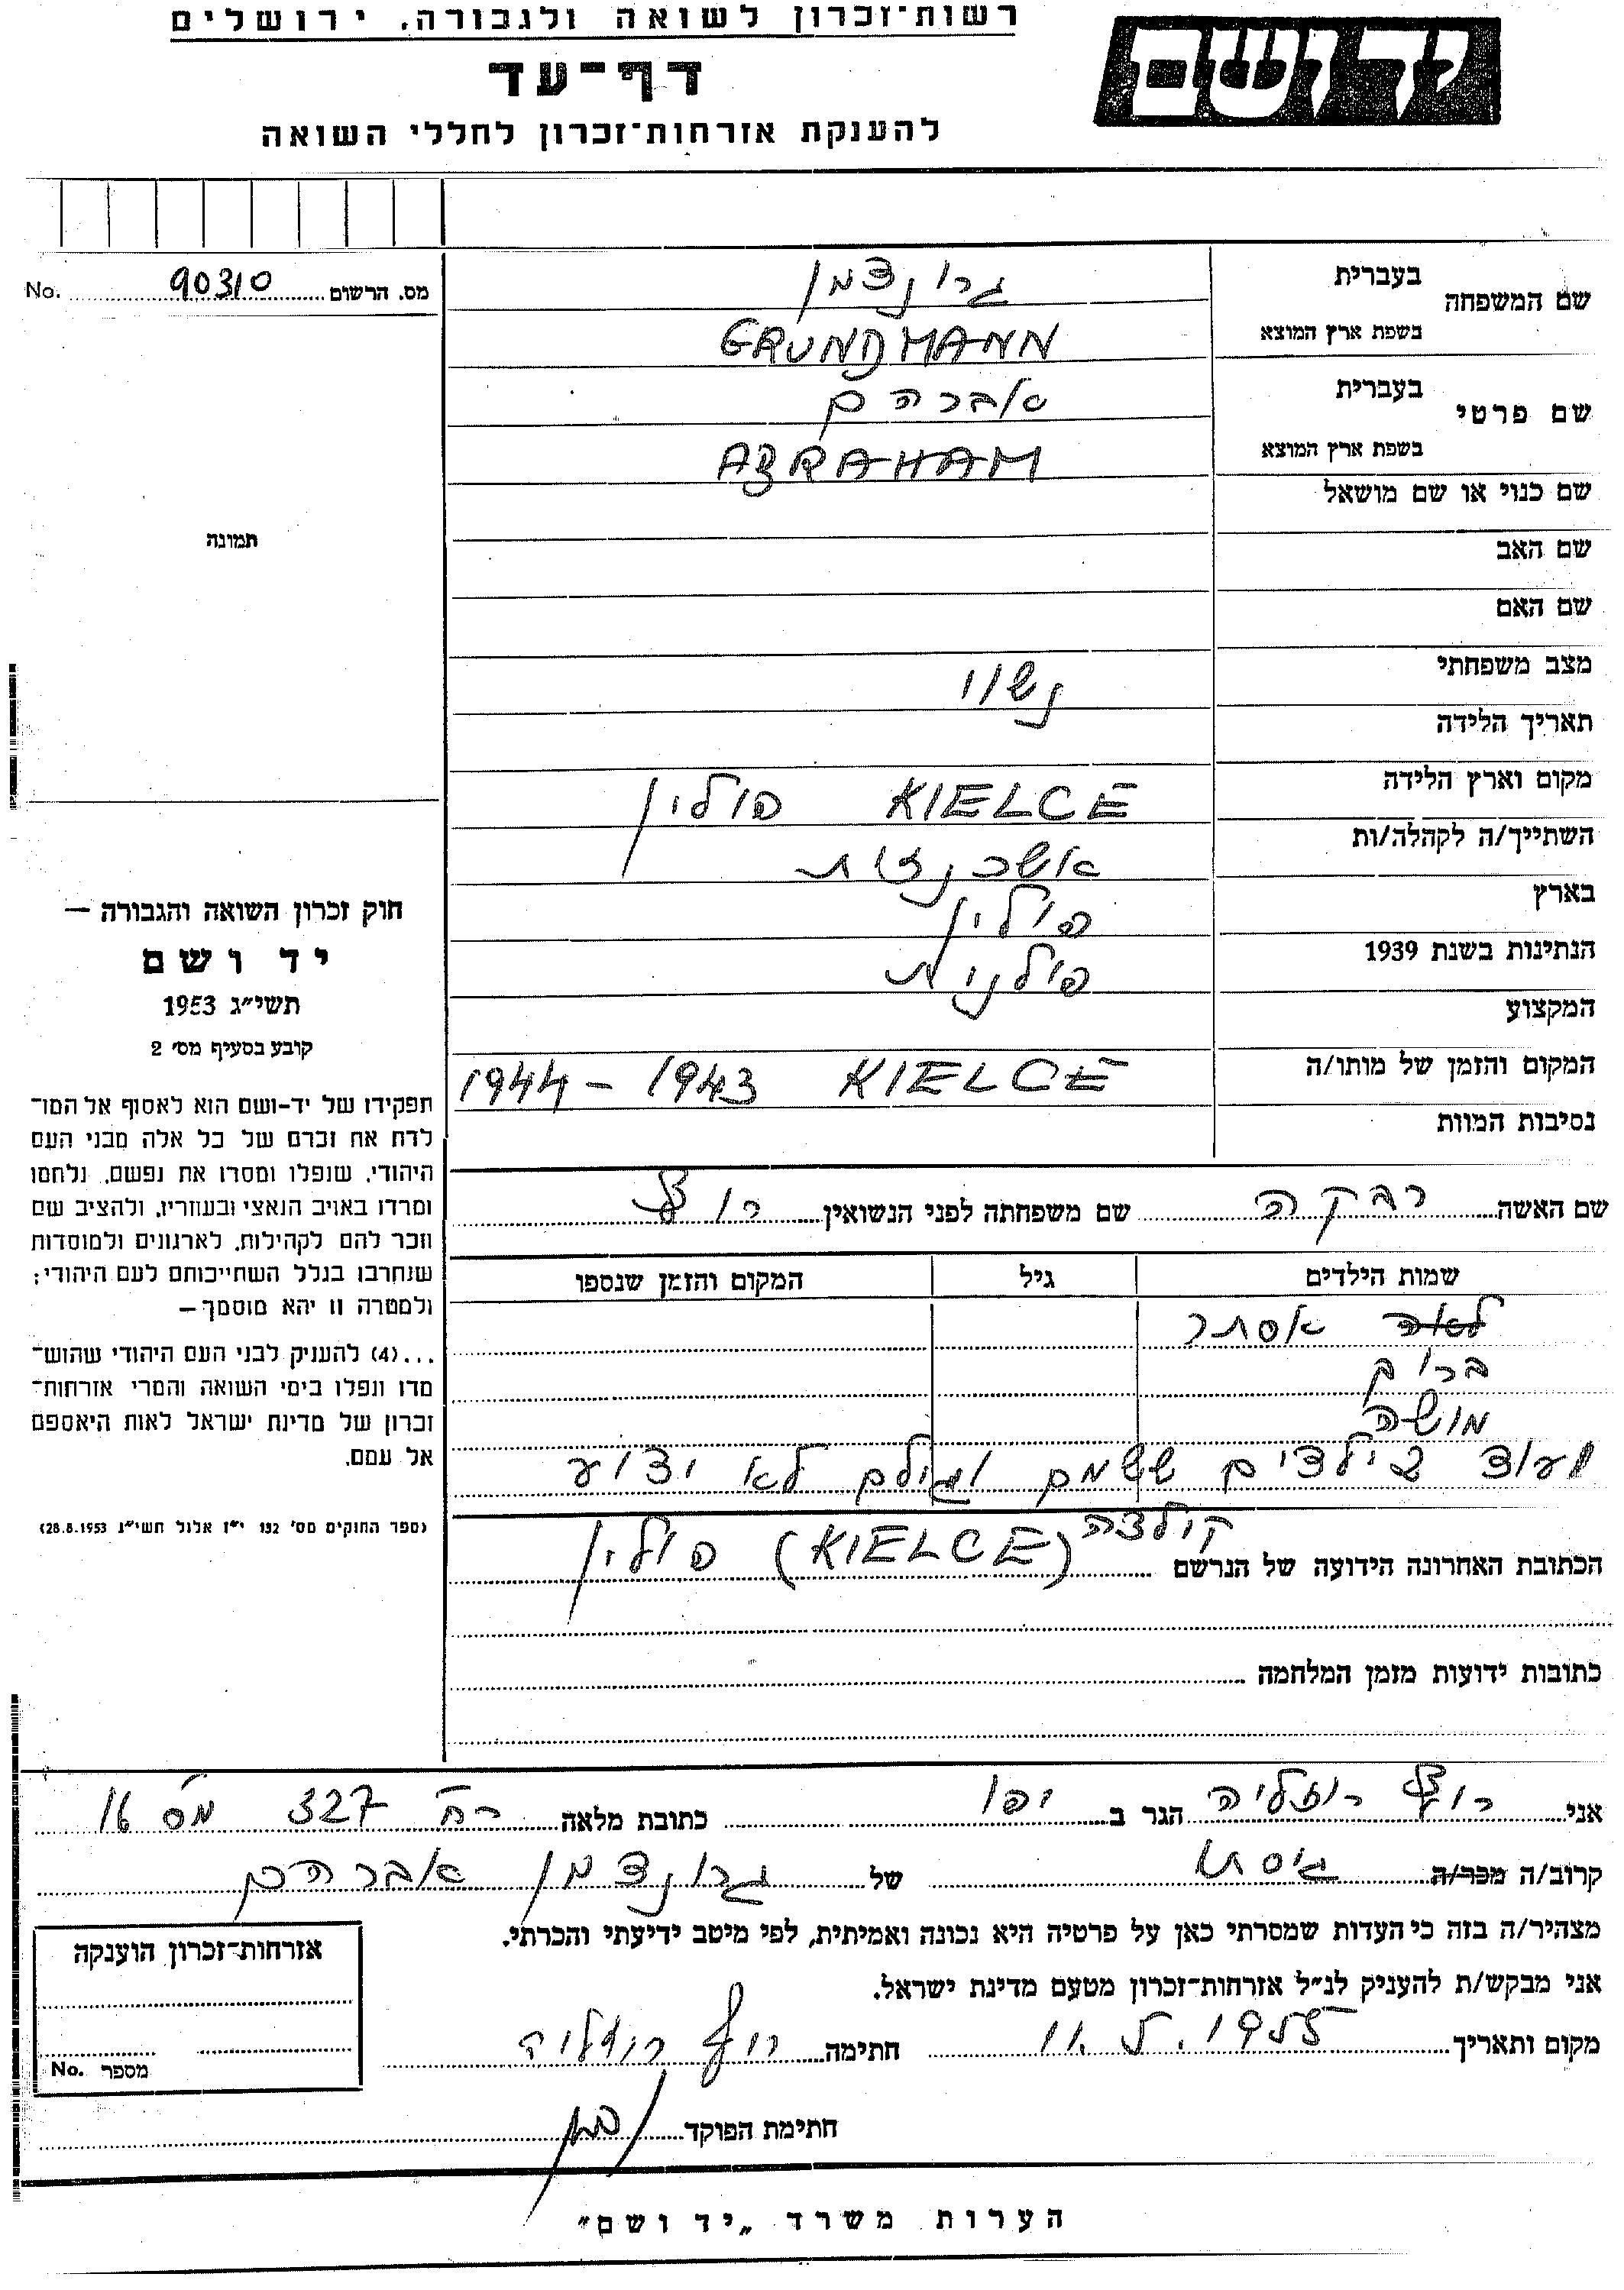 רשות־זכרון לשואה ולגבורה, ירושלים
דף־עד
להענקת אזרחות־זכרון לחללי השואה
יד ושם
No. 90310 מס. הרשום
תמונה
חוק זכרון השואה והגבורה —
יד ושם
תשי״ג 1953
קובע בסעיף מס׳ 2
תפקידו של יד-ושם הוא לאסוף אל המו־
לדת את זכרם של כל אלה מבני העם
היהודי, שנפלו ומסרו את נפשם, נלחמו
ומרדו באויב הנאצי ובעוזריו, ולהציב שם
וזכר להם לקהילות, לארגונים ולמוסדות
שנחרבו בגלל השתייכותם לעם היהודי;
ולמטרה זו יהא מוסמך —
...(4) להעניק לבני העם היהודי שהוש־
מדו ונפלו בימי השואה והמרי אזרחות־
זכרון של מדינת ישראל לאות היאספם
אל עמם.
(ספר החוקים מס׳ 132 י״ז אלול תשי״ג 28.8.1953)
שם המשפחה בעברית גרונדמן
בשפת ארץ המוצא GRUNDMANN
שם פרטי בעברית אברהם
בשפת ארץ המוצא ABRAHAM
שם כנוי או שם מושאל
שם האב
שם האם
מצב משפחתי נשוי
תאריך הלידה
מקום וארץ הלידה KIELCE פולין
השתייך/ה לקהלה/ות אשכנזית
בארץ פולין
הנתינות בשנת 1939 פולנית
המקצוע
המקום והזמן של מותו/ה KIELCE 1943 – 1944
נסיבות המוות
שם האשה רבקה שם משפחתה לפני הנשואין
שמות הילדים גיל המקום והזמן שנספו
לאה אסתר
ברוך
מושה
ועוד ילדים ששמם וגילם לא ידוע
הכתובת האחרונה הידועה של הנרשם קילצה (KIELCE) פולין
כתובות ידועות מזמן המלחמה
אני רוזליה הגר ב יפו כתובת מלאה רח׳ 327 מס 16
קרוב/ה מכר/ה גיסתו של גרונדמן אברהם
מצהיר/ה בזה כי העדות שמסרתי כאן על פרטיה היא נכונה ואמיתית, לפי מיטב ידיעתי והכרתי.
אני מבקש/ת להעניק לנ״ל אזרחות־זכרון מטעם מדינת ישראל.
מקום ותאריך חתימה רוזליה
חתימת הפוקד
אזרחות־זכרון הוענקה
No. מספר
הערות משרד „יד ושם״